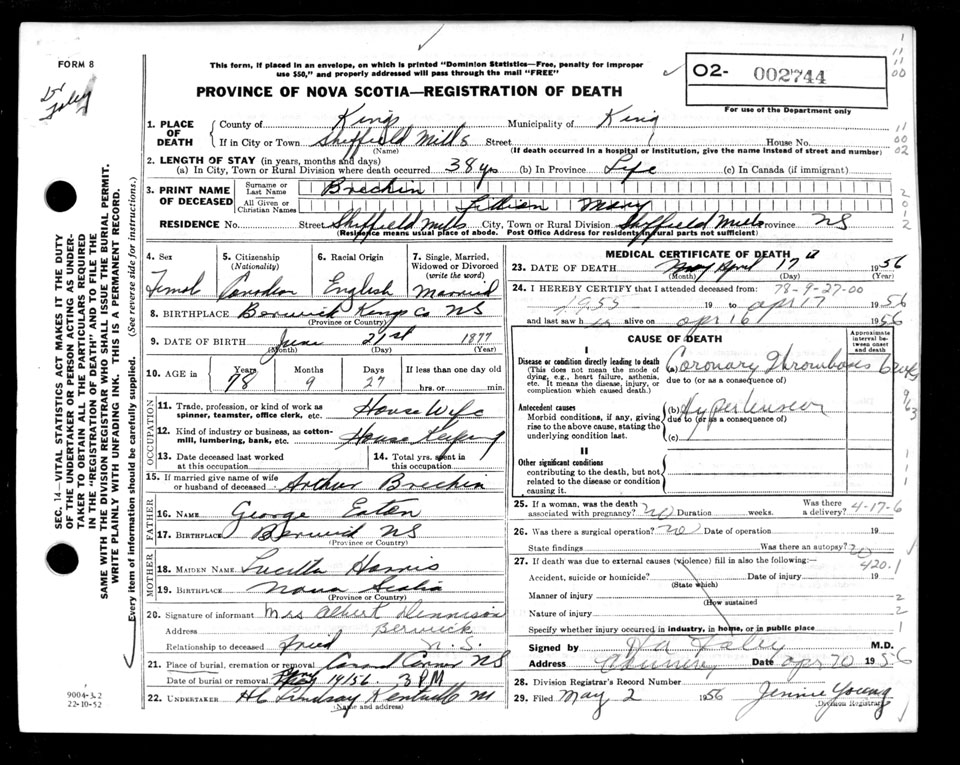 FORM 8
This form, if placed in an envelope, on which is printed "Dominion Statistics—Free, penalty for improper
use $50," and properly addressed will pass through the mail "FREE"
02- 002744
For use of the Department only
PROVINCE OF NOVA SCOTIA—REGISTRATION OF DEATH
Dr Foley
SEC. 14—VITAL STATISTICS ACT MAKES IT THE DUTY
OF THE UNDERTAKER OR PERSON ACTING AS UNDER-
TAKER TO OBTAIN ALL THE PARTICULARS REQUIRED
IN THE "REGISTRATION OF DEATH" AND TO FILE THE
SAME WITH THE DIVISION REGISTRAR WHO SHALL ISSUE THE BURIAL PERMIT.
WRITE PLAINLY WITH UNFADING INK. THIS IS A PERMANENT RECORD.
Every item of information should be carefully supplied. (See reverse side for instructions.)
1. PLACE OF DEATH
County of Kings Municipality of King
If in City or Town Sheffield Mills Street House No.
(Name) (If death occurred in a hospital or institution, give the name instead of street and number)
2. LENGTH OF STAY (in years, months and days)
(a) In City, Town or Rural Division where death occurred 38 yrs (b) In Province Life (c) In Canada (if immigrant)
3. PRINT NAME OF DECEASED
Surname or Last Name Brechin
All Given or Christian Names Lillian Mary
RESIDENCE No. Street Sheffield Mills City, Town or Rural Division Sheffield Mills Province NS
(Residence means usual place of abode. Post Office Address for residents in rural parts not sufficient)
4. Sex
Female
5. Citizenship (Nationality)
Canadian
6. Racial Origin
English
7. Single, Married, Widowed or Divorced (write the word)
Married
8. BIRTHPLACE Berwick Kings Co NS
(Province or Country)
9. DATE OF BIRTH June 21st 1877
(Month) (Day) (Year)
10. AGE in Years 78 Months 9 Days 27 If less than one day old
hrs. or min.
OCCUPATION
11. Trade, profession, or kind of work as spinner, teamster, office clerk, etc. House Wife
12. Kind of industry or business, as cotton-mill, lumbering, bank, etc. House Keeping
13. Date deceased last worked at this occupation
14. Total yrs. spent in this occupation
15. If married give name of wife or husband of deceased Arthur Brechin
FATHER
16. NAME George Eaton
17. BIRTHPLACE Berwick NS
(Province or Country)
MOTHER
18. MAIDEN NAME Harris
19. BIRTHPLACE Nova Scotia
(Province or Country)
20. Signature of informant Mrs Albert Dennison
Address Berwick N.S.
Relationship to deceased
21. Place of burial, cremation or removal NS
Date of burial or removal 19/56 3 PM
22. UNDERTAKER H C Lindsay Kentville
(Name and address)
MEDICAL CERTIFICATE OF DEATH
23. DATE OF DEATH April 17 1956
(Month) (Day) (Year)
24. I HEREBY CERTIFY that I attended deceased from: 78-9-27-00
1955 19 to apr 17 1956
and last saw h er alive on apr 16 1956
CAUSE OF DEATH
Approximate interval between onset and death
I
Disease or condition directly leading to death
(This does not mean the mode of dying, e.g., heart failure, asthenia, etc. It means the disease, injury, or complication which caused death.)
(a) Coronary Thrombosis
due to (or as a consequence of)
Antecedent causes
Morbid conditions, if any, giving rise to the above cause, stating the underlying condition last.
(b) Hypertension
due to (or as a consequence of)
(c)
II
Other significant conditions
contributing to the death, but not related to the disease or condition causing it.
25. If a woman, was the death associated with pregnancy? no Duration weeks. Was there a delivery? 4-17-6
26. Was there a surgical operation? no Date of operation 19
State findings Was there an autopsy? no
27. If death was due to external causes (violence) fill in also the following:— 420.1
Accident, suicide or homicide? Date of injury 19
(State which)
Manner of injury
(How sustained
Nature of injury
Specify whether injury occurred in industry, in home, or in public place
Signed by Foley M.D.
Address Date apr 20 1956
28. Division Registrar's Record Number
29. Filed May 2 1956 Jennie Young
Division Registrar
9004-3.2
22-10-52